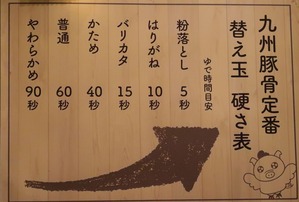 九州豚骨定番
替え玉 硬さ表
ゆで時間目安
粉落とし 5秒
はりがね 10秒
バリカタ 15秒
かため 40秒
普通 60秒
やわらかめ 90秒